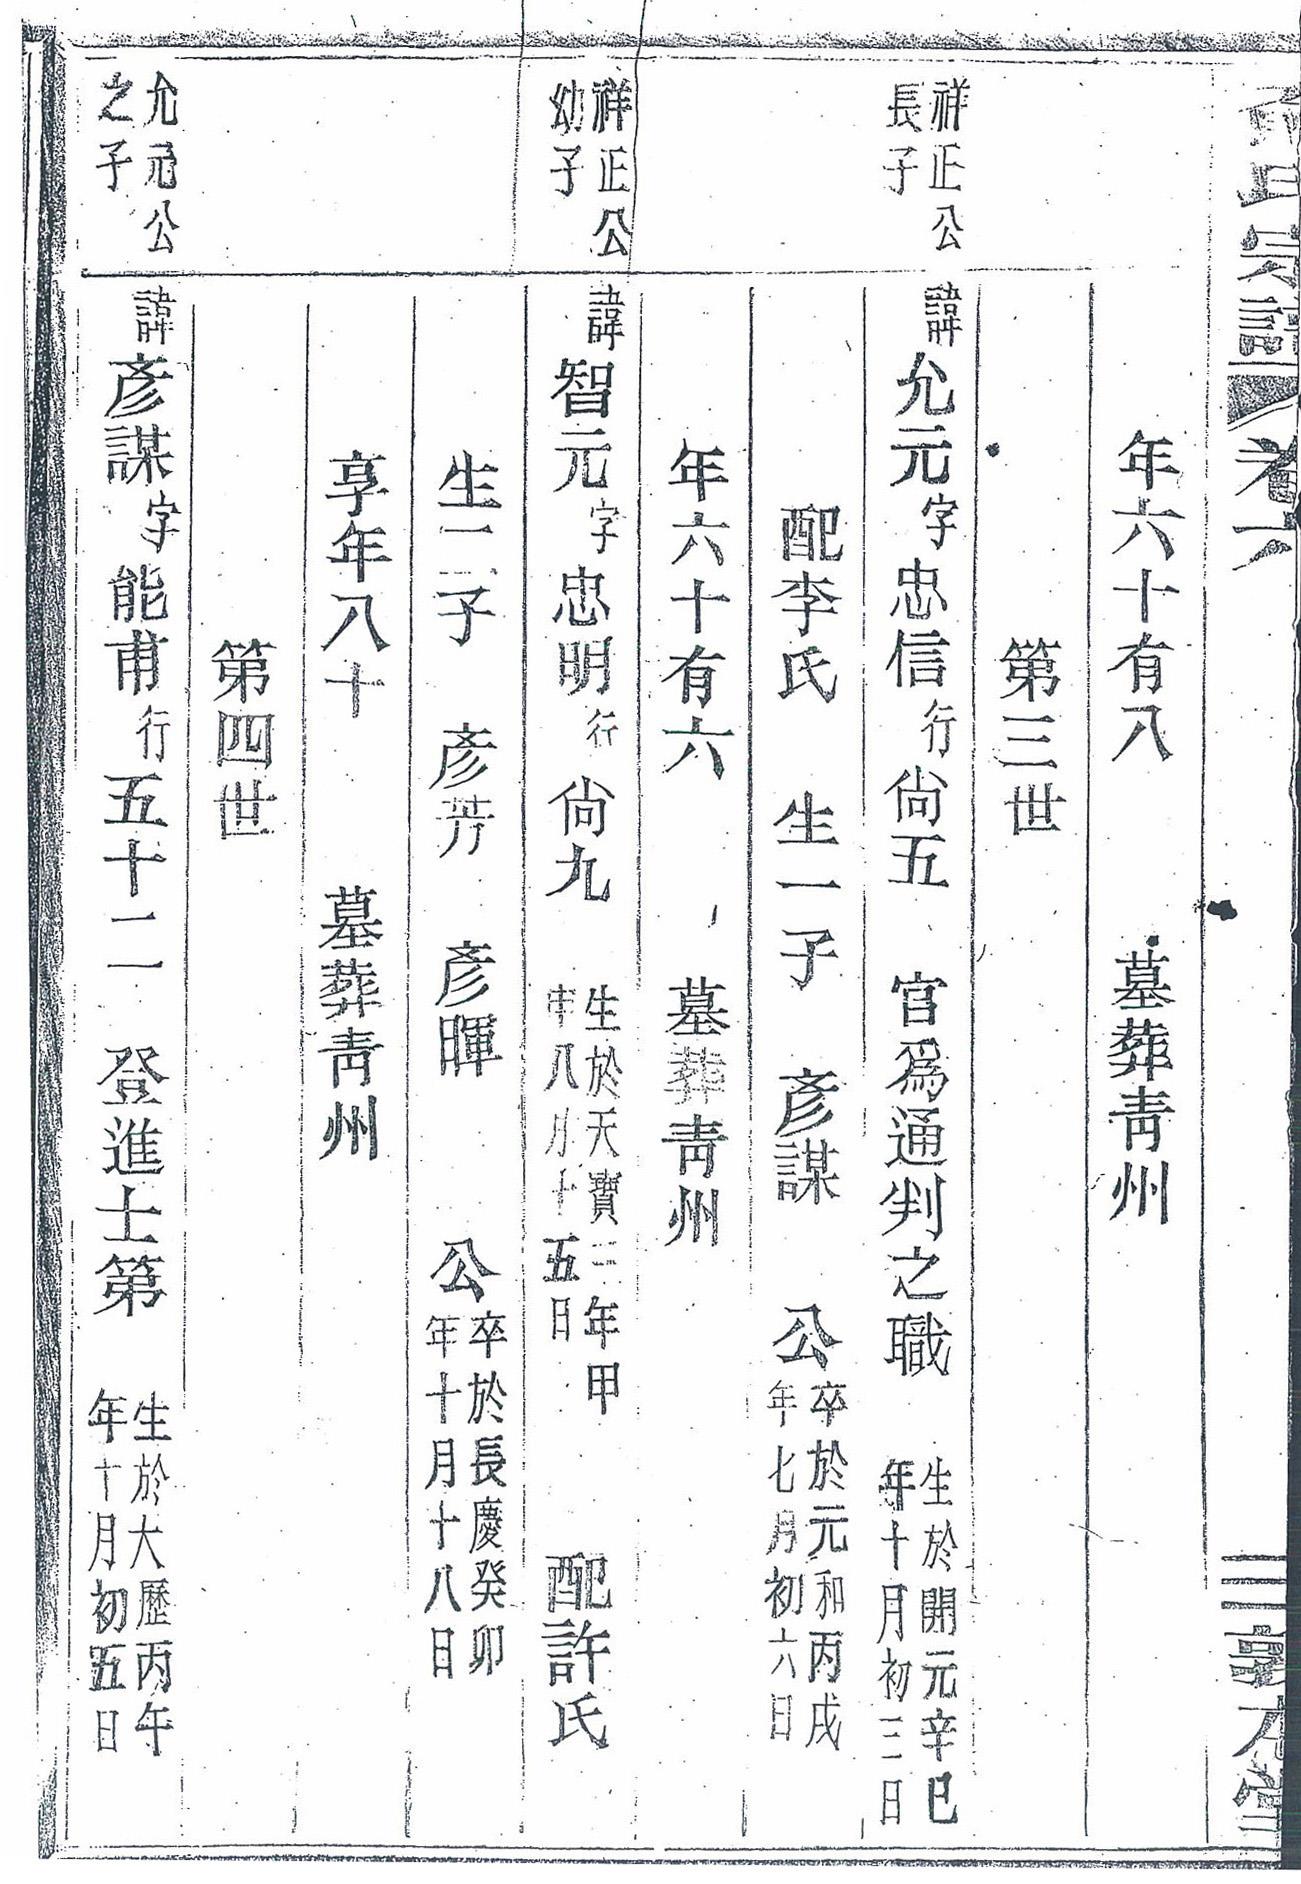 氏宗譜
卷六
三
敦九堂
年六十有八　墓葬青州
第三世
祥正公
長子
諱允元字忠信行尙五　官爲通判之職
生於開元辛巳
年十月初三日
配李氏　生一子　彥謀　公
卒於元和丙戌
年七月初六日
年六十有六　墓葬青州
祥正公
幼子
諱智元字忠明行尙九
生於天寶三年甲
申八月十五日
配許氏
生二子　彥芳　彥暉　公
卒於長慶癸卯
年十月十八日
享年八十　墓葬青州
第四世
允元公
之子
諱彥謀字能甫行五十二　登進士第
生於大歷丙午
年十月初五日